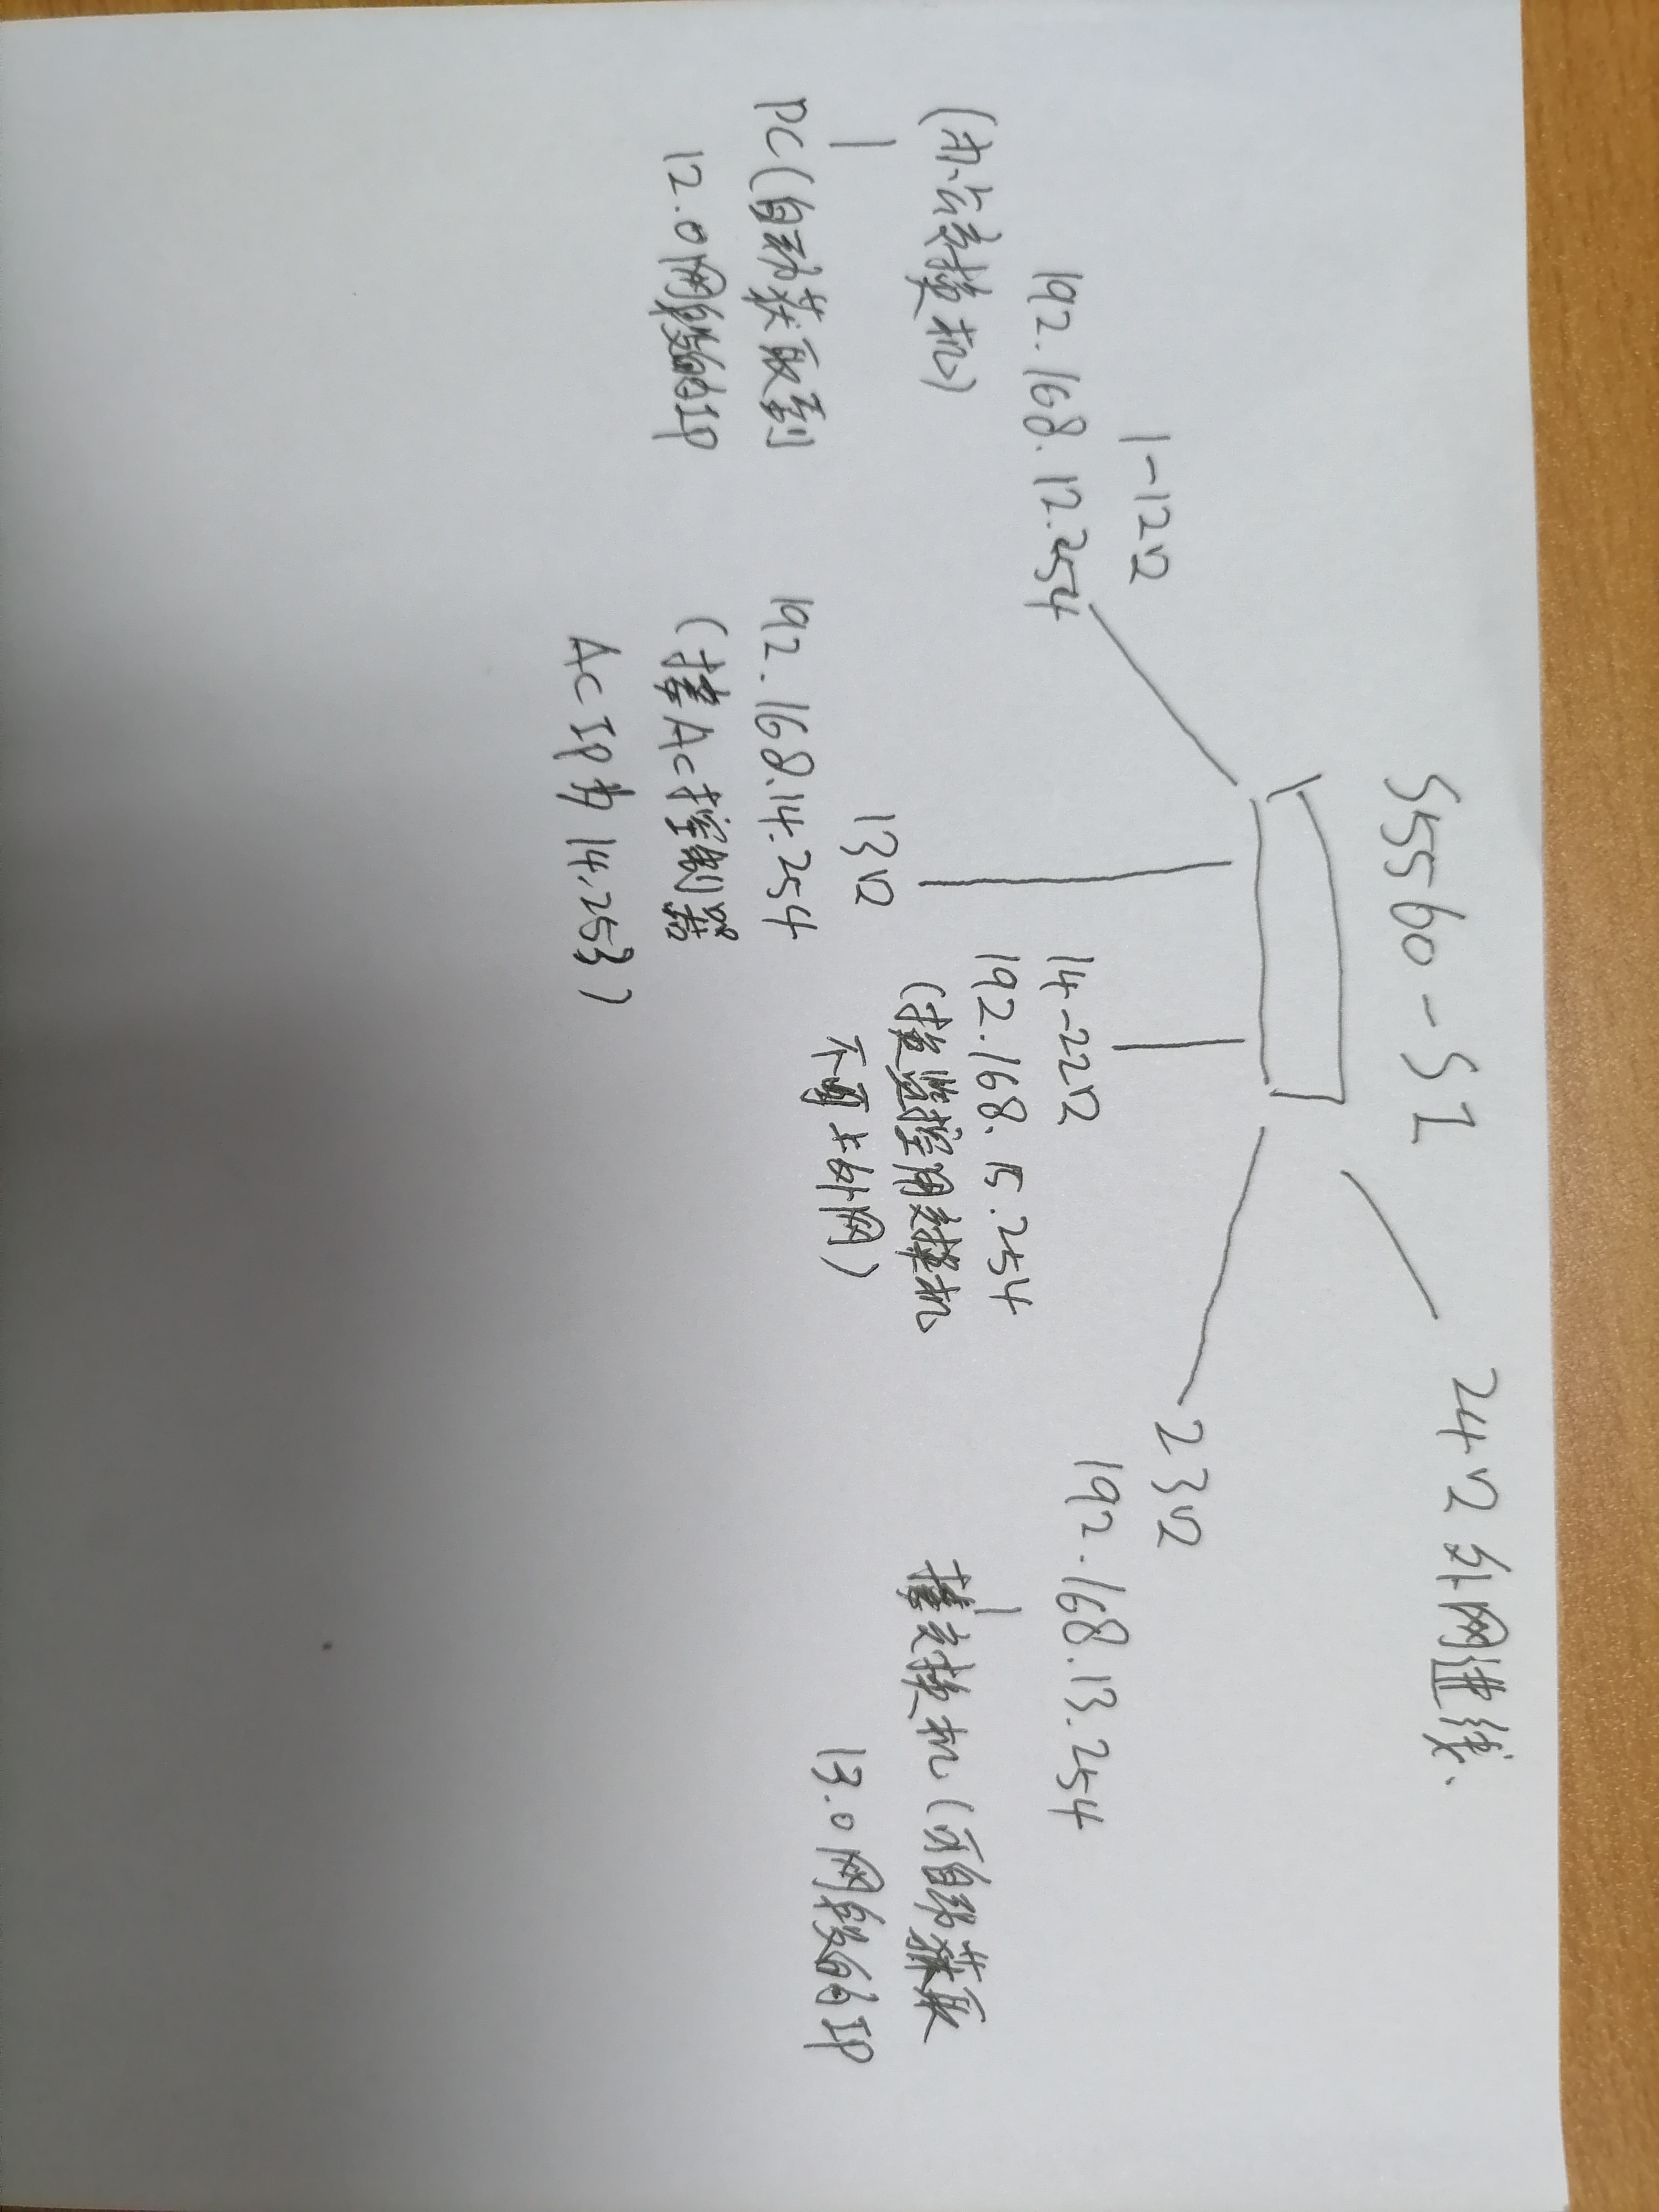 S5560-SI
24口外网进线.
1-12口
192.168.12.254
(办公交换机)
PC(自动获取到
12.0网段的IP
13口
192.168.14.254
(接AC控制器
AC IP为14.253)
14-22口
192.168.15.254
(接监控用交换机
不可上外网)
23口
192.168.13.254
接交换机(可自动获取
13.0网段的IP